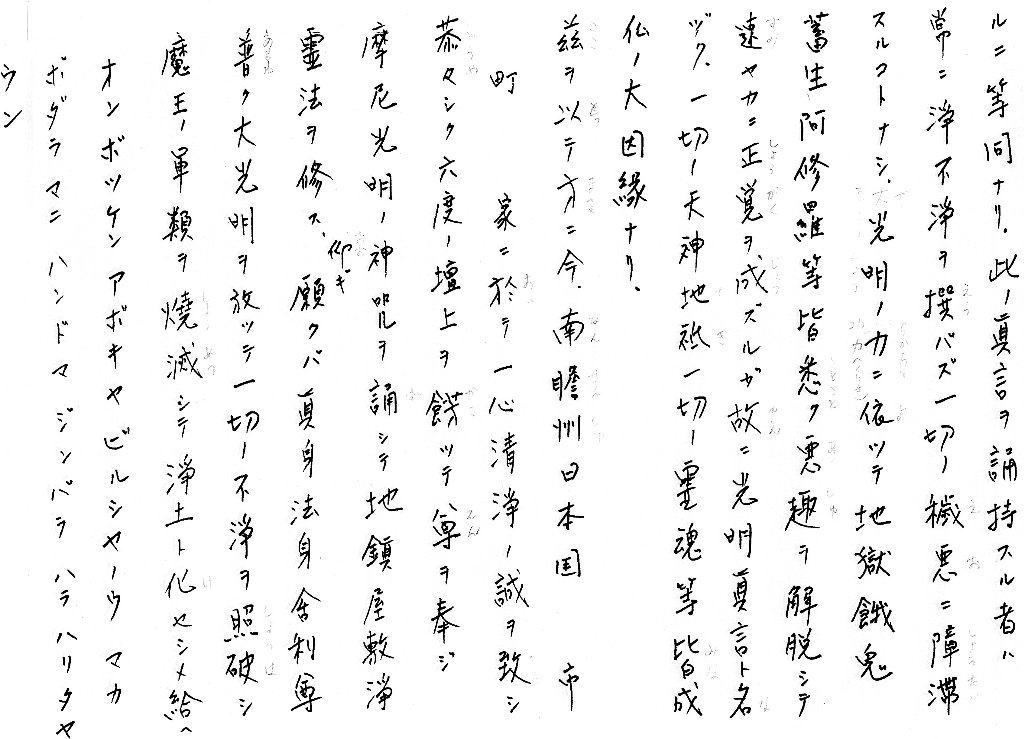 ルニ等同ナリ、此ノ真言ヲ誦持スル者ハ
常ニ浄不浄ヲ撰バズ一切ノ穢悪ニ障滞
スルコトナシ、大光明ノ力ニ依ッテ地獄餓鬼
蓄生阿修羅等皆悉ク悪趣ヲ解脱シテ
速ヤカニ正覚ヲ成ズルガ故ニ光明真言ト名
ヅク、一切ノ天神地祇一切ノ霊魂等皆成
仏ノ大因縁ナリ、
茲ヲ以テ方ニ今、南瞻州日本国 市
町 家ニ於テ一心清浄ノ誠ヲ致シ
恭々シク六度ノ壇上ヲ餝ッテ尊ヲ奉ジ
摩尼光明ノ神呪ヲ誦シテ地鎮屋敷浄
霊法ヲ修ス、仰ギ願クバ真身法身舎利尊
普ク大光明ヲ放ッテ一切ノ不浄ヲ照破シ
魔王ノ軍類ヲ焼滅シテ浄土ト化セシメ給ヘ
オンボッケンアボキャビルシャノウマカ
ボダラマニハンドマジンバラハラハリタヤ
ウン